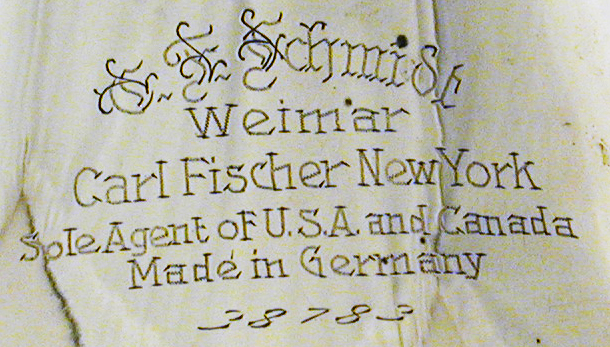 F. F. Schmidt
Weimar
Carl Fischer New York
Sole Agent of U.S.A. and Canada
Made in Germany
38783